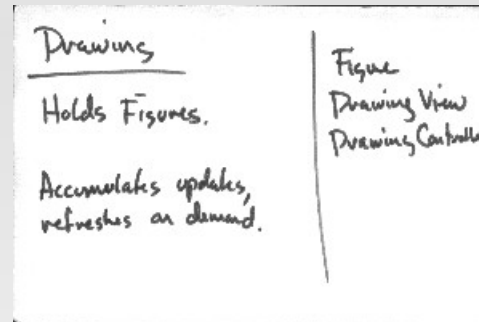 Drawing
Holds Figures.
Accumulates updates,
refreshes on demand.
Figure
Drawing View
Drawing Controlle